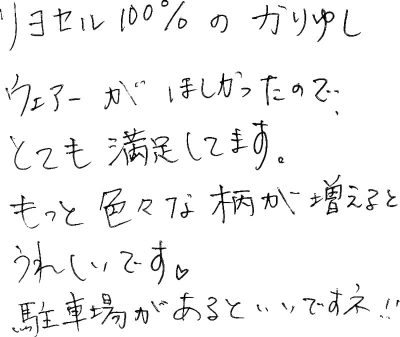 リヨセル100%のかりゆし
ウェアーがほしかったので、
とても満足してます。
もっと色々な柄が増えると
うれしいです♡
駐車場があるといいですネ!!